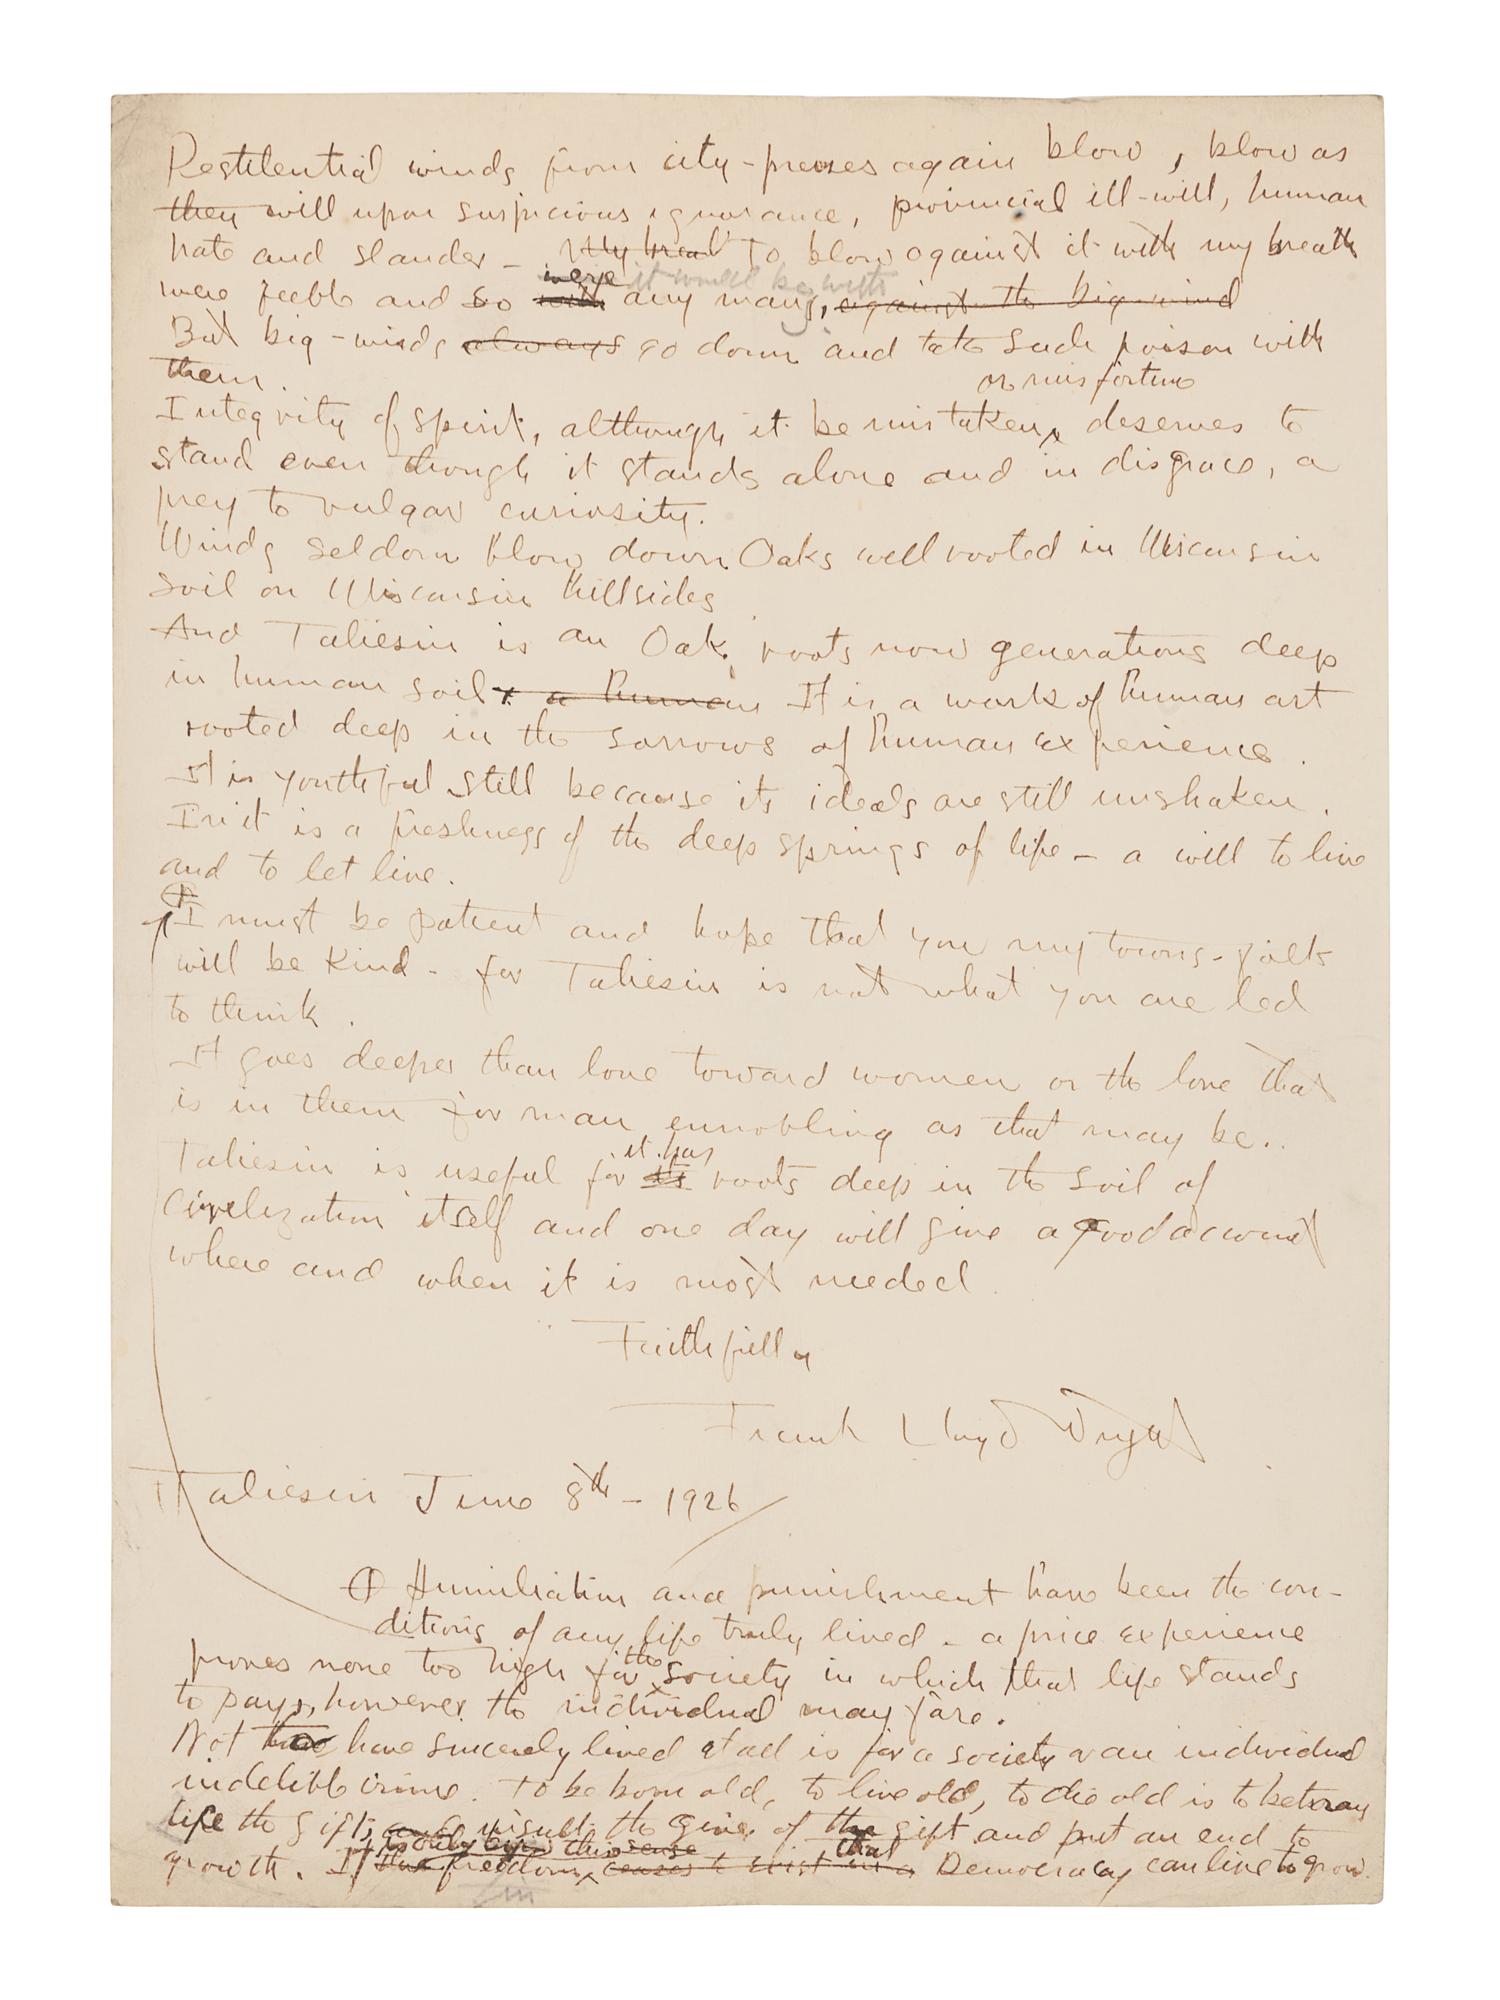 Pestilential winds from city-presses again blow, blow as
they will upon suspicious ignorance, provincial ill-will, human
hate and slander - My breat To blow against it with my breath
were it would be with
were feeble and so with any mans, against the big wind
But big-winds always go down and take such poison with
them.
or misfortune
Integrity of spirit, although it be mistaken, deserves to
stand even though it stands alone and in disgrace, a
prey to vulgar curiosity.
Winds seldom blow down Oaks well rooted in Wisconsin
soil on Wisconsin hillsides
And Taliesin is an Oak, roots now generations deep
in human soil. a human It is a work of human art
rooted deep in the sorrows of human experience.
It is youthful still because its ideals are still unshaken.
In it is a freshness of the deep springs of life - a will to live
and to let live.
I must be patient and hope that you my towns-folk
will be kind - for Taliesin is not what you are led
to think.
It goes deeper than love toward women or the love that
is in them for man ennobling as that may be..
it has
Taliesin is useful for its roots deep in the soil of
Civelization itself and one day will give a good account
where and when it is most needed.
Faithfully
Frank Lloyd Wright
Taliesin June 8th - 1926
Humiliation and punishment have been the con-
ditions of any life truly lived - a price experience
the
proves none too high for society in which that life stands
to pay, however the individual may fare.
Not have sincerely lived at all is for a society or an individual
indelible crime. To be born old, to live old, to die old is to betray
life the gift, and insult the giver of the gift and put an end to
is only by in this sense that
growth. If the freedom, ceases to exist in a Democracy can live to grow.
in